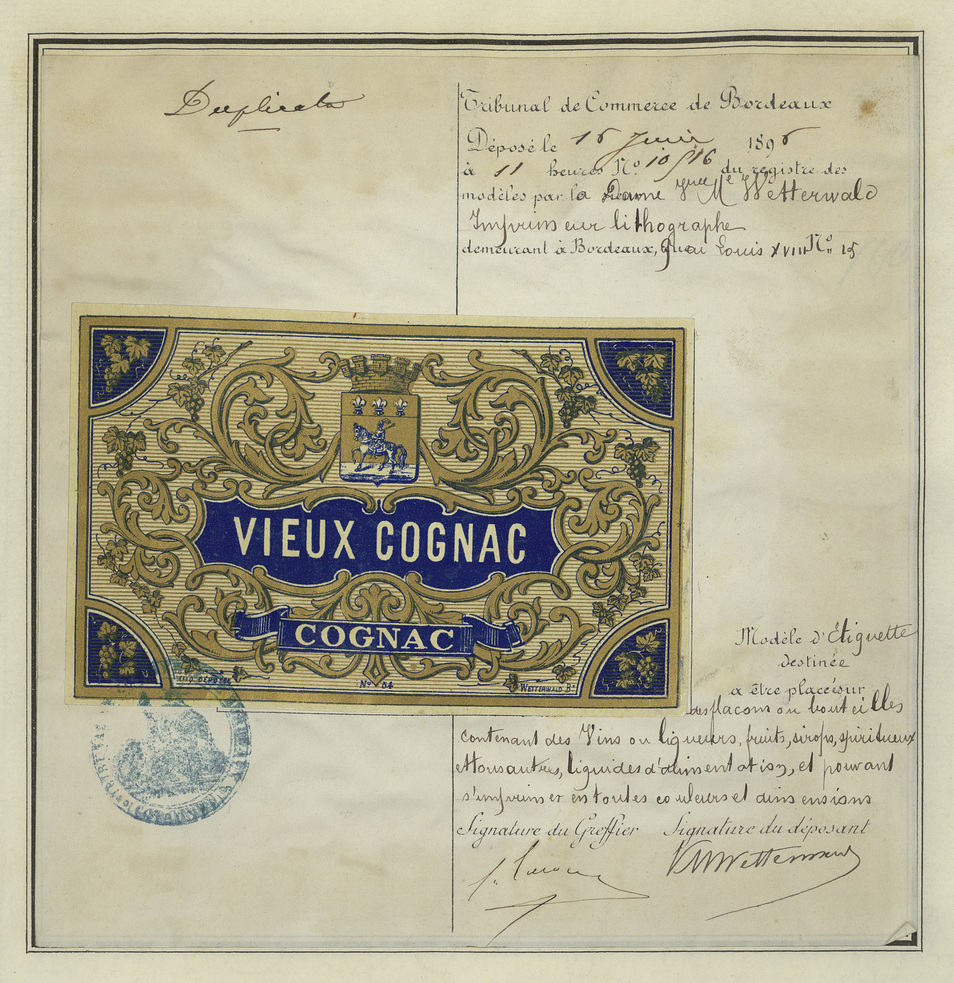 Duplicata
Tribunal de Commerce de Bordeaux
Déposé le 16 Juin 1896
à 11 heures No. 10516 du registre des
modèles par la Dame Vve Me Wetterwald
Imprimeur lithographe
demeurant à Bordeaux, Quai Louis XVIII No 15
VIEUX COGNAC
COGNAC
No 54
WETTERWALD Bx
Modèle d'Etiquette
destinée
a être placée sur
des flacons ou bouteilles
contenant des Vins ou liqueurs, fruits, sirops, spiritueux
et tous autres, liquides d'alimentation, et pouvant
s'imprimer en toutes couleurs et dimensions
Signature du Greffier Signature du déposant
VM Wetterwald